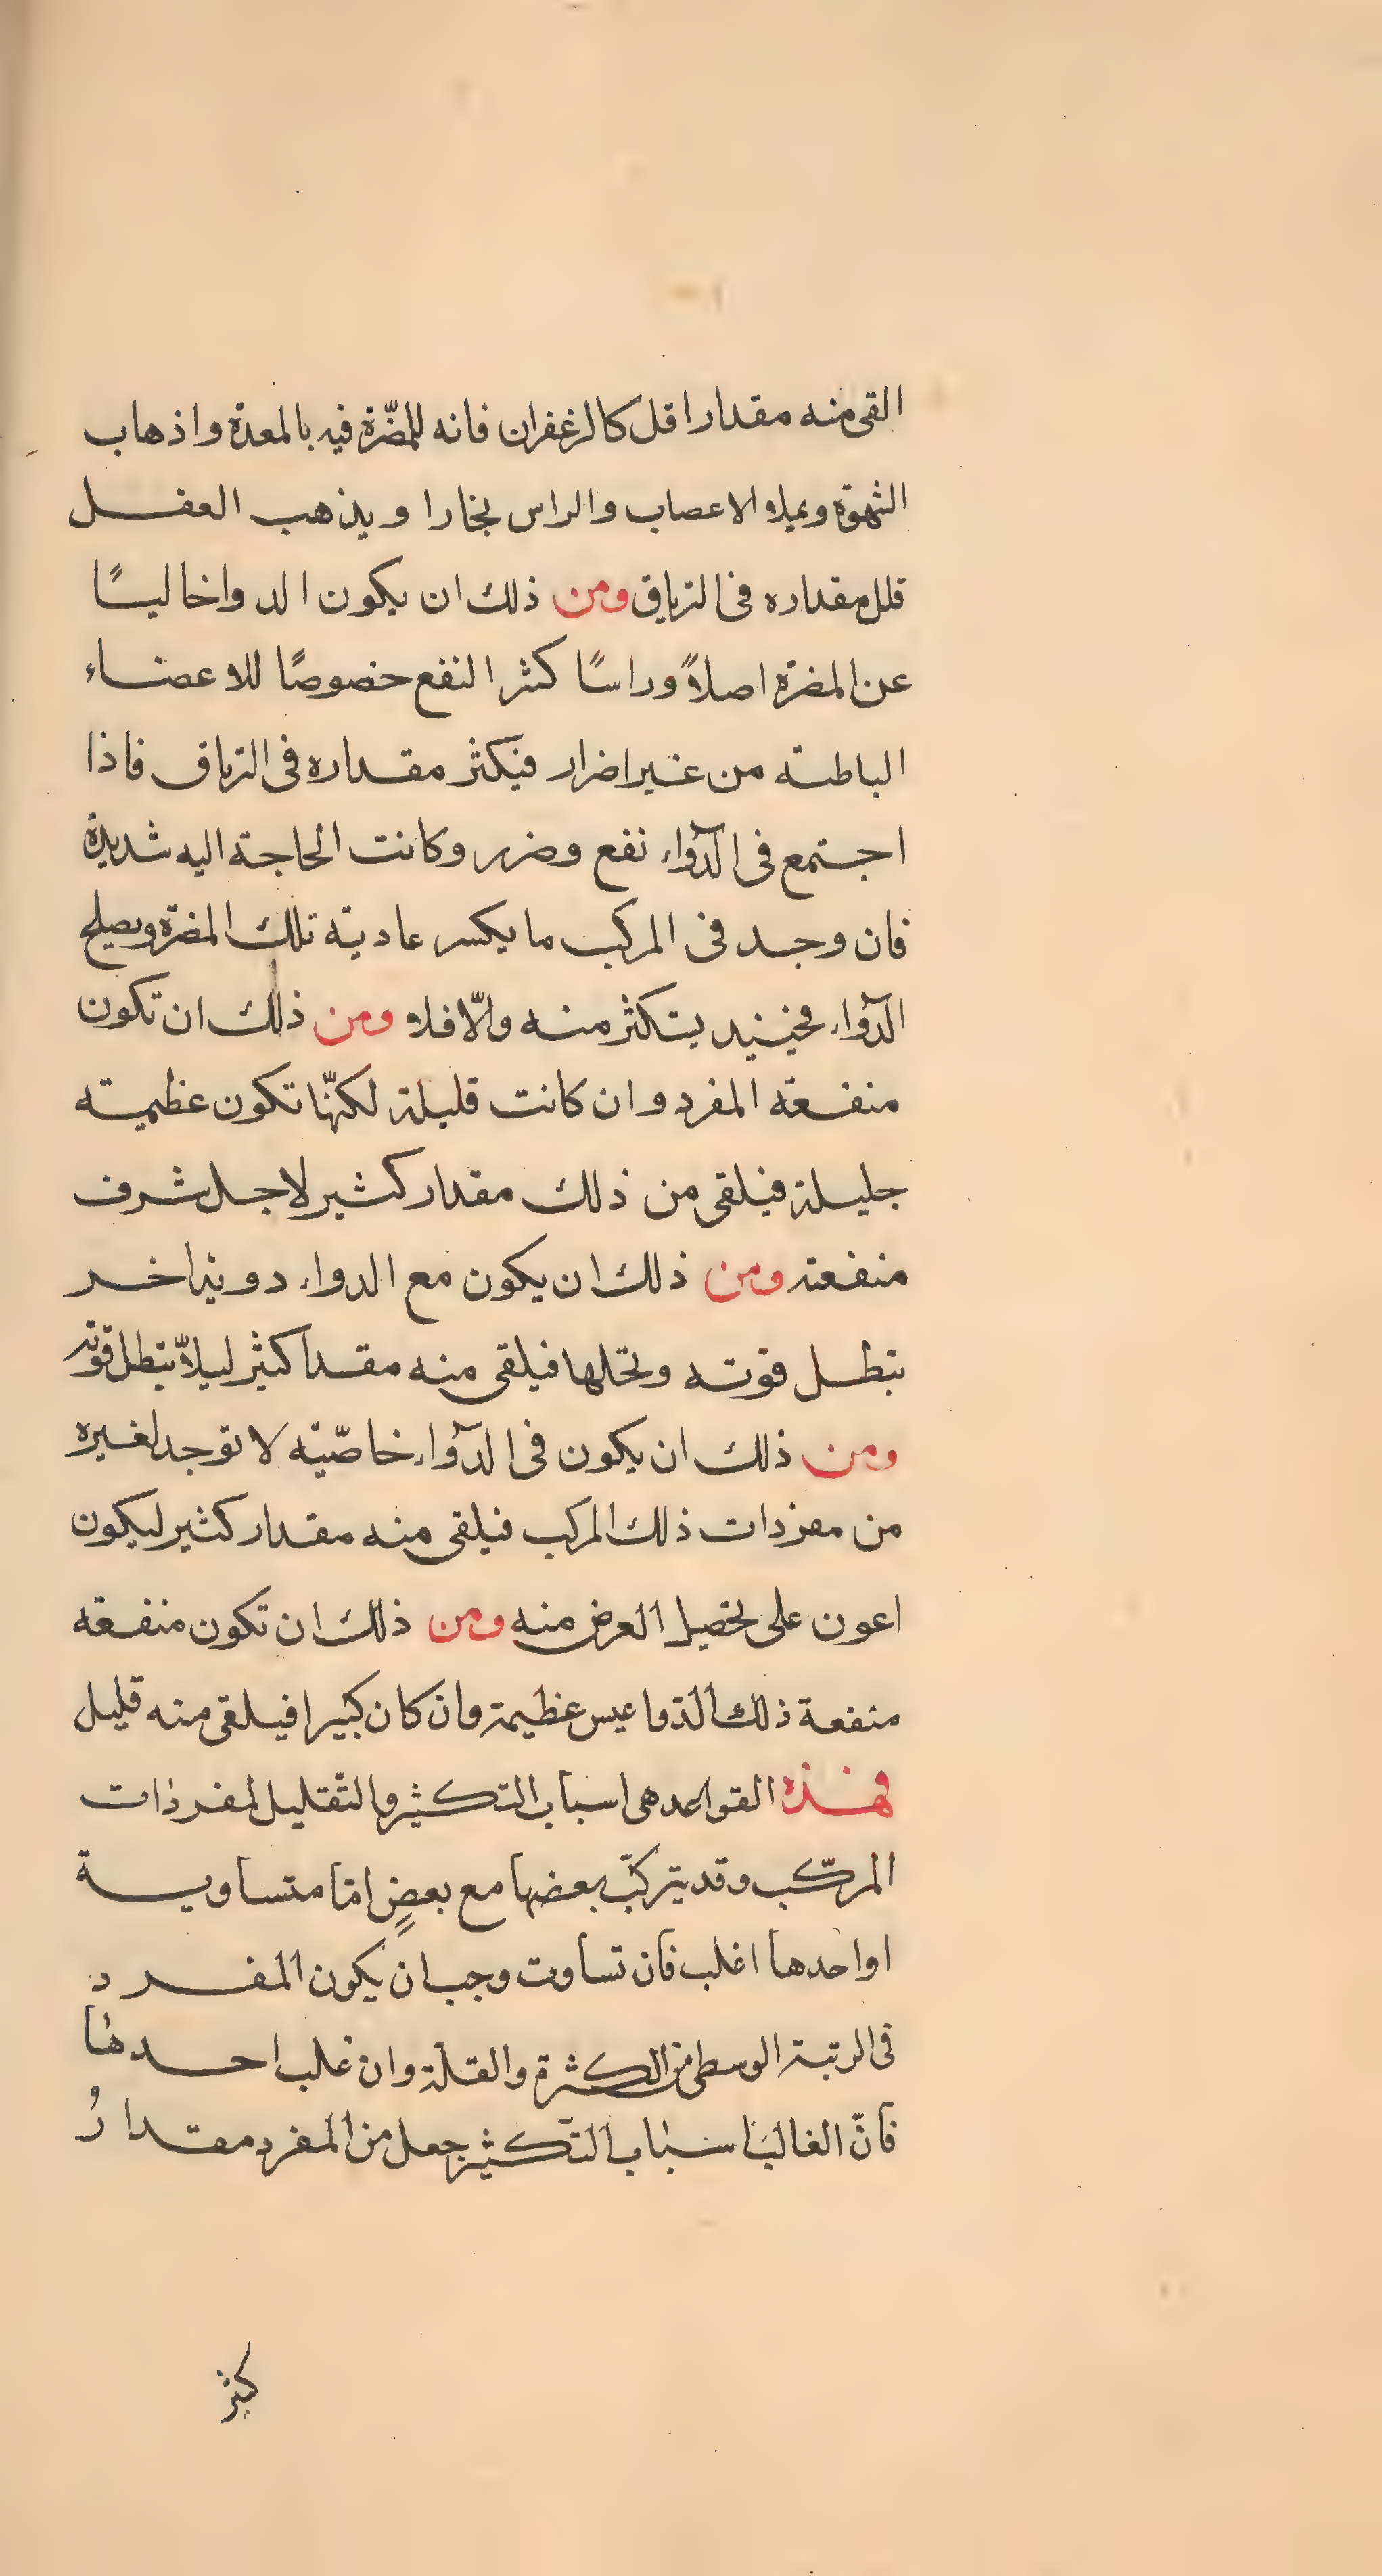 القى منه مقدارا قل كالزعفران فانه للمضّرة فيه بالمعدة واذهاب
الشهوة ويملاء الاعصاب والراس بخارا ويذهب العقل
قلل مقداره فى الترياق ومن ذلك ان يكون الدواخاليسًا
عن المضرة اصلاً وراسًا كثر النفع خصوصًا للاعضاء
الباطنه من غير اضرار فيكثر مقداره فى الترياق فاذا
اجتمع فى الدّواء نفع وضرر وكانت الحاجة اليه شديدة
فان وجد فى المركب ما يكسر عادية تلك المضرة ويصلح
الدّواء فحينيد يتكثر منه والّا فلا ومن ذلك ان تكون
منفعة المفرد وان كانت قليلة لكنّها تكون عظيمته
جليلة فيلقى من ذلك مقدار كثير لاجل شرف
منفعته ومن ذلك ان يكون مع الدواء دوية اخر
تبطل قوته وتحلها فيلقى منه مقدا كثير ليلاّ يبطل قوته
ومن ذلك ان يكون فى الدّواء خاصّيّه لا توجد لغيره
من مفردات ذلك المركب فيلقى منه مقدار كثير ليكون
اعون على تحصيل العرض منه ومن ذلك ان تكون منفعة
منفعة ذلك الدّوا عيس عظيمة وان كان كثيرا فيلقى منه قليل
فهذه القواعد هى اسباب التكثير والتّقليل لمفردات
المركّب وقد يتركبّ بعضها مع بعضٍ امّا متساوية
او احدها اغلب فان تساوت وجب ان يكون المفرد
فى الرتبة الوسطى من الكثرة والقلّة وان غلب احدها
فانّ الغالب اسباب التّكثير جعل من المفرد مقدارُ
كثير